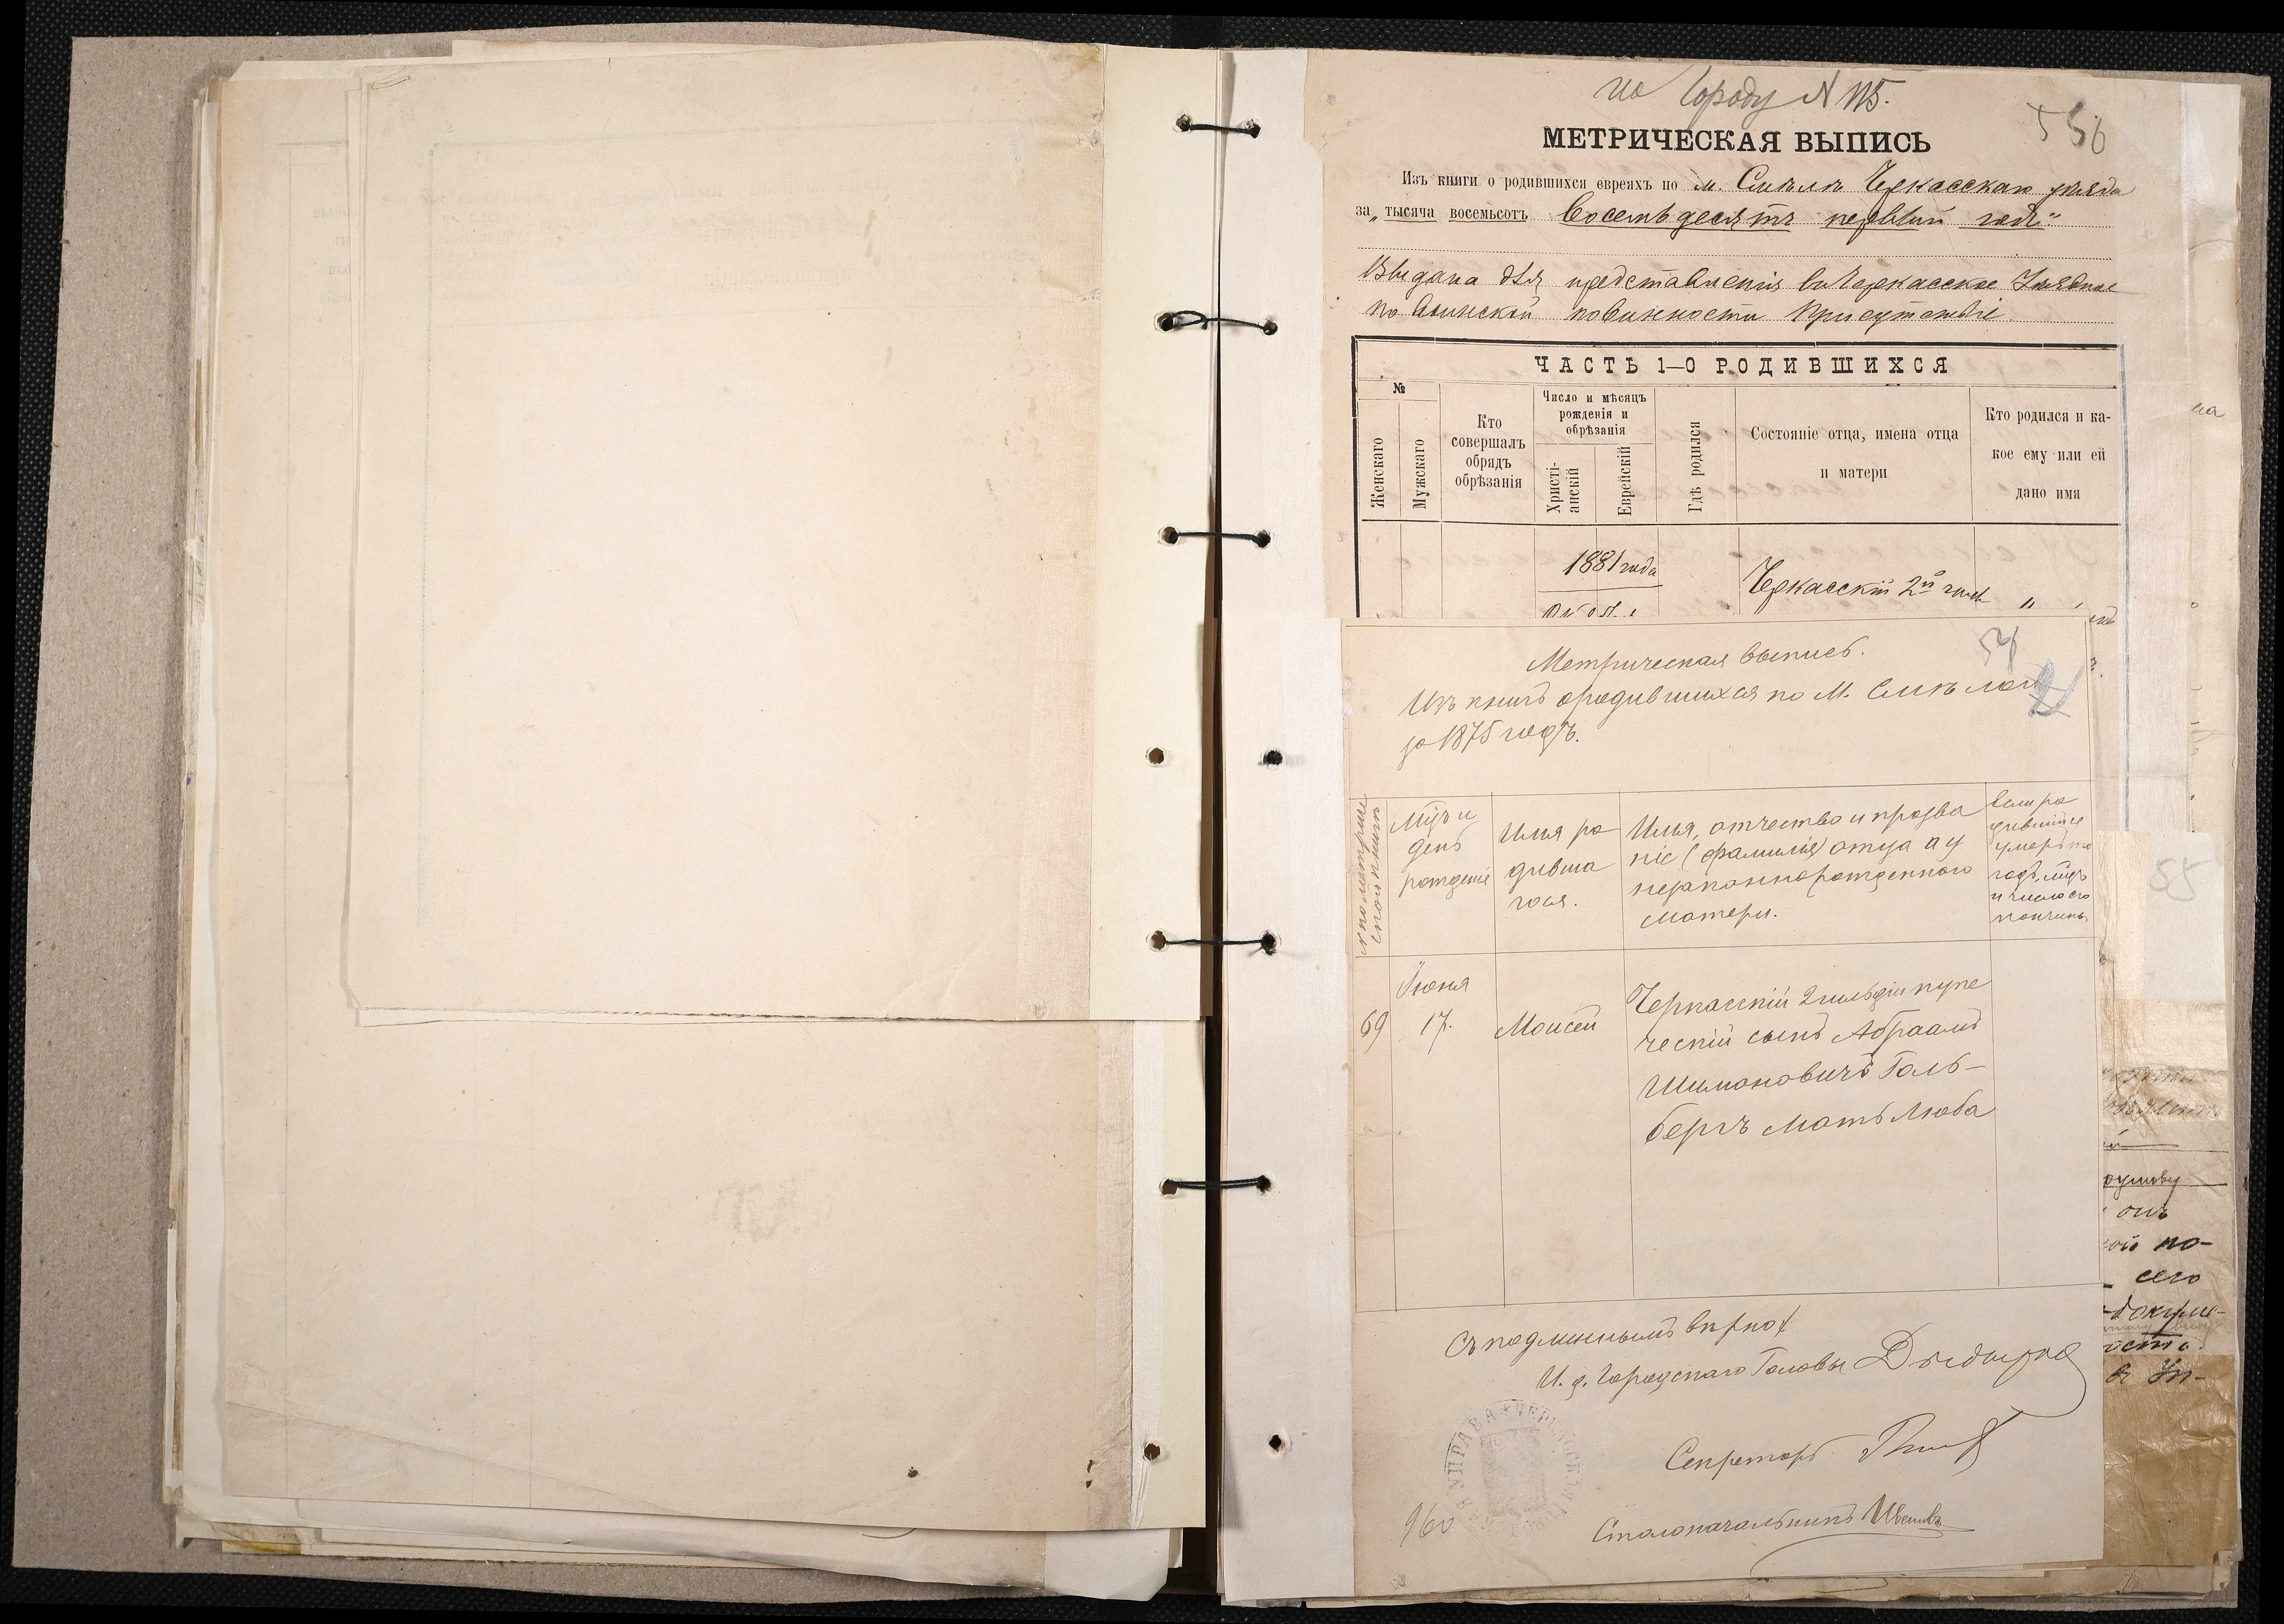 по городу N 115.
556
МЕТРИЧЕСКАЯ ВЫПИСЬ
Изъ книги о родившихся евреяхъ по м. Смѣлѣ Черкасскаго уѣзда
за „тысяча восемьсотъ восемьдесятъ первый годъ“
Выдана для представленія въ Черкасское Уѣздное
по воинской повинности Присутствіе.
ЧАСТЬ 1—О РОДИВШИХСЯ
№
Женскаго
Мужскаго
Кто совершалъ обрядъ обрѣзанія
Число и мѣсяцъ рожденія и обрѣзанія
Христі-анскій
Еврейскій
Гдѣ родился
Состояніе отца, имена отца и матери
Кто родился и ка-кое ему или ей дано имя
1881 года
Черкасскій 2й гил
54
Метрическая выпись.
Изъ книгъ о родившихся по М. Смѣлой
за 1875 годъ.
N по метриче
ской книгѣ
Мц҃ъ и
день
рожденія
Имя ро
дивша
гося.
Имя, отчество и прозва
ніе (фамилія) отца а у
незаконнорожденнаго
матери.
Если ро
дившійся
умеръ то
годъ, мц҃ъ
и число его
кончины
69
Іюня
17.
Моисей
Черкасскій 2 гильдіи купе
ческій сынъ Абраамъ
Шимоновичъ Голь-
бергъ мать Люба
Съ подлиннымъ вѣрно
И. д. Городскаго Головы
Секретарь
Столоначальникъ
960
УПРАВА
55
по-
сего